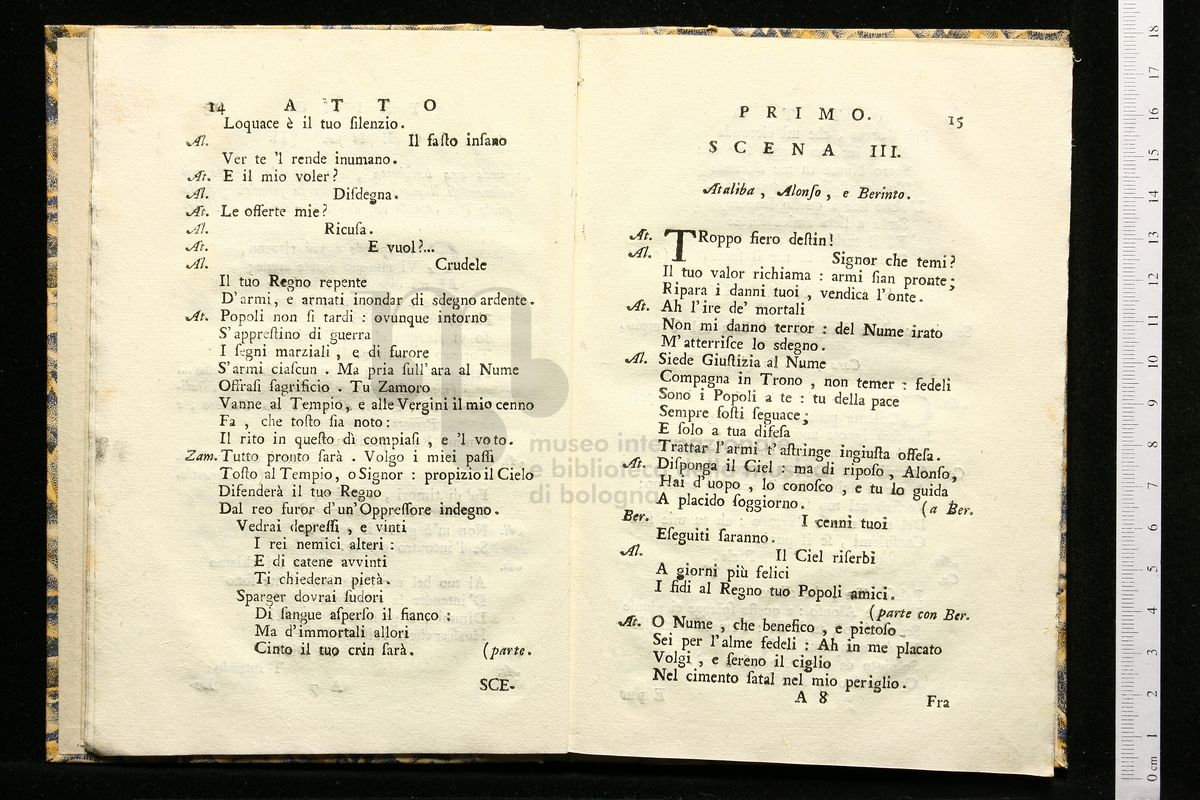 14 ATTO
Loquace è il tuo ſilenzio.
Al. Il faſto inſano
Ver te 'l rende inumano.
At. E il mio voler?
Al. Diſdegna.
At. Le offerte mie?
Al. Ricuſa.
At. E vuol?...
Al. Crudele
Il tuo Regno repente
D'armi, e armati inondar di sdegno ardente.
At. Popoli non ſi tardi : ovunque intorno
S'appreſtino di guerra
I ſegni marziali , e di furore
S'armi ciaſcun . Ma pria ſull'ara al Nume
Offraſi ſagrificio . Tu Zamoro
Vanne al Tempio, e alle Vergini il mio cenno
Fa , che toſto ſia noto:
Il rito in queſto dì compiaſi , e 'l voto.
Zam. Tutto pronto ſarà . Volgo i miei paſſi
Toſto al Tempio, o Signor : propizio il Cielo
Difenderà il tuo Regno
Dal reo furor d'un'Oppreſſore indegno.
Vedrai depreſſi , e vinti
I rei nemici alteri :
E di catene avvinti
Ti chiederan pietà.
Sparger dovrai ſudori
Di ſangue aſperſo il fianco :
Ma d'immortali allori
Cinto il tuo crin ſarà. (parte.
SCE-
PRIMO. 15
SCENA III.
Ataliba , Alonſo , e Berinto.
At. TRoppo fiero deſtin!
Al. Signor che temi?
Il tuo valor richiama : armi ſian pronte;
Ripara i danni tuoi , vendica l'onte.
At. Ah l'ire de' mortali
Non mi danno terror : del Nume irato
M'atterriſce lo sdegno.
Al. Siede Giuſtizia al Nume
Compagna in Trono , non temer : fedeli
Sono i Popoli a te : tu della pace
Sempre foſti ſeguace;
E ſolo a tua difeſa
Trattar l'armi t'aſtringe ingiuſta offeſa.
At. Diſponga il Ciel : ma di ripoſo , Alonſo,
Hai d'uopo , lo conoſco , e tu lo guida
A placido ſoggiorno. (a Ber.
Ber. I cenni tuoi
Eſeguiti ſaranno.
Al. Il Ciel riſerbi
A giorni più felici
I fidi al Regno tuo Popoli amici.
(parte con Ber.
At. O Nume , che benefico , e pietoſo
Sei per l'alme fedeli : Ah in me placato
Volgi , e ſereno il ciglio
Nel cimento fatal nel mio periglio.
A 8 Fra
museo internazionale
e biblioteca della musica
di bologna
0 cm 1 2 3 4 5 6 7 8 9 10 11 12 13 14 15 16 17 18